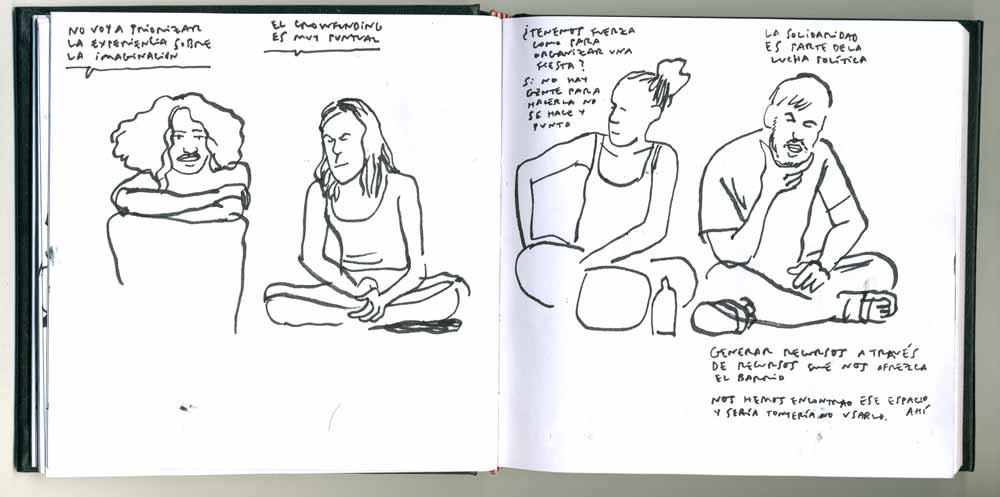 NO VOY A PRIORIZAR
LA EXPERIENCIA SOBRE
LA IMAGINACIÓN
EL CROWFUNDING
ES MUY PUNTUAL
¿TENEMOS FUERZA
COMO PARA
ORGANIZAR UNA
FIESTA?
SI NO HAY
GENTE PARA
HACERLA NO
SE HACE Y
PUNTO
LA SOLIDARIDAD
ES PARTE DE LA
LUCHA POLÍTICA
GENERAR RECURSOS A TRAVÉS
DE RECURSOS QUE NOS OFREZCA
EL BARRIO
NOS HEMOS ENCONTRAO ESE ESPACIO
Y SERÍA TONTERÍA NO USARLO. AHÍ